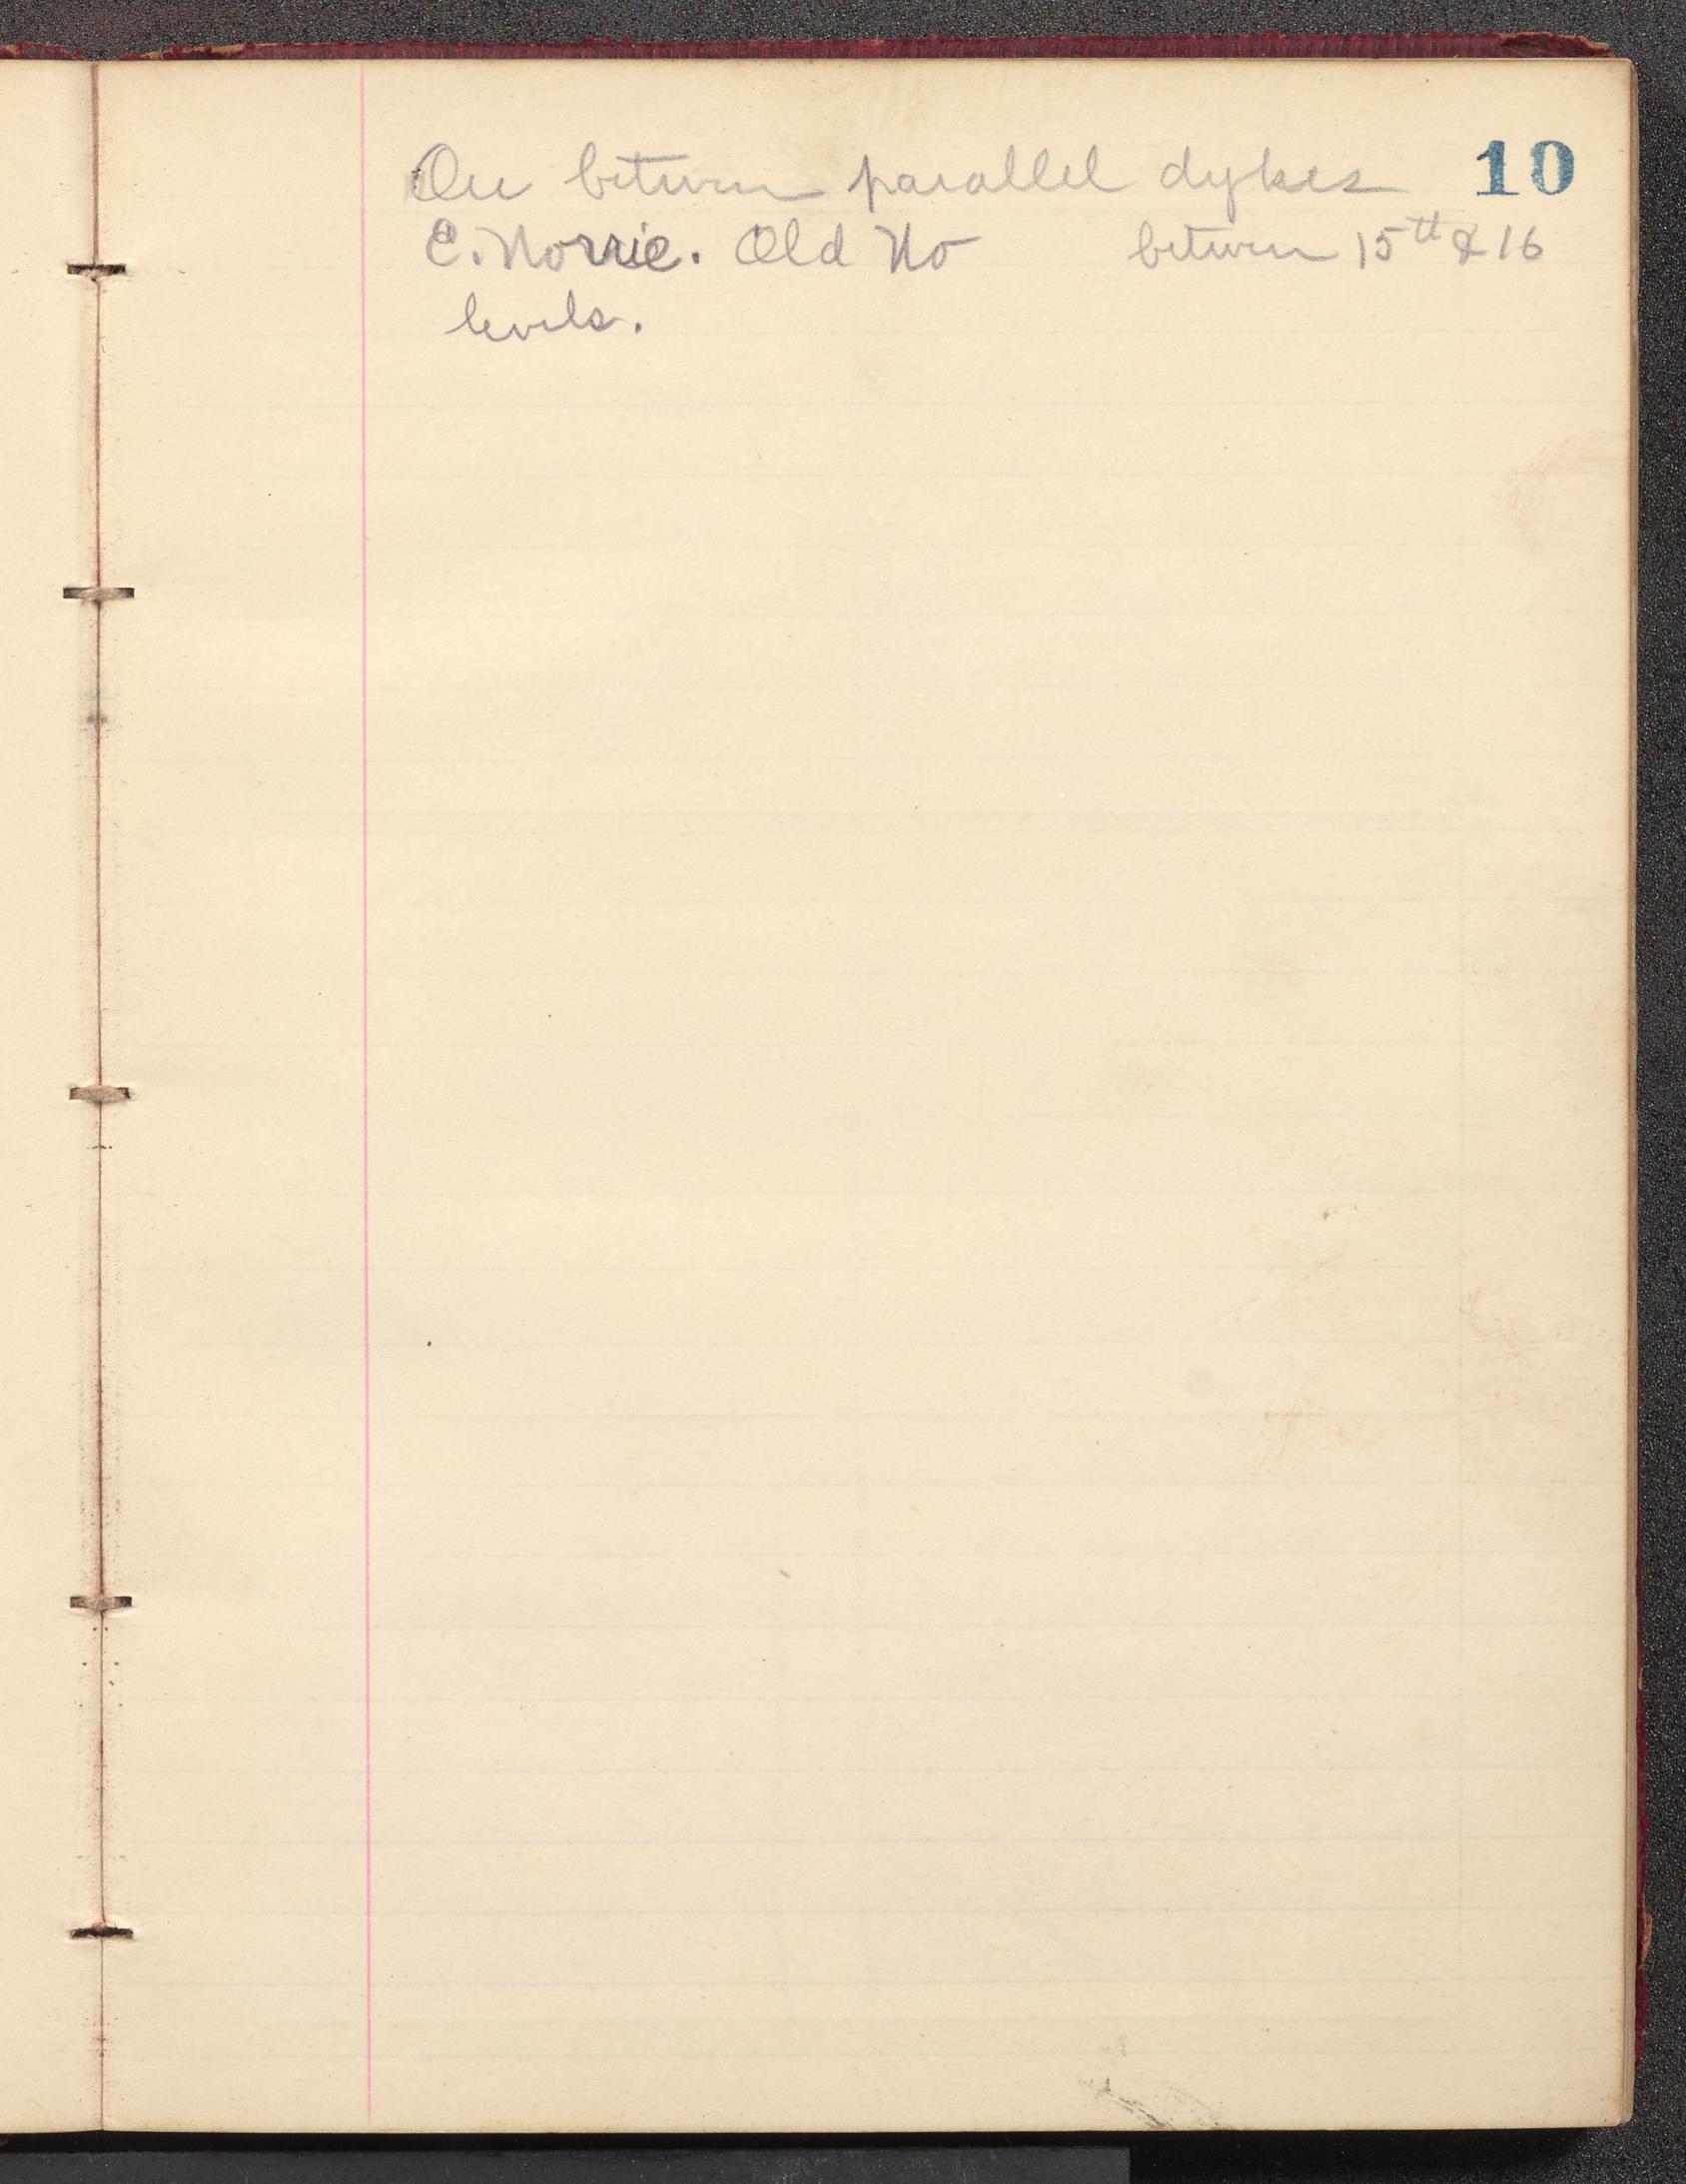 Ore between parallel dykes 10
E. Norrie. Old No between 15th & 16
levels.